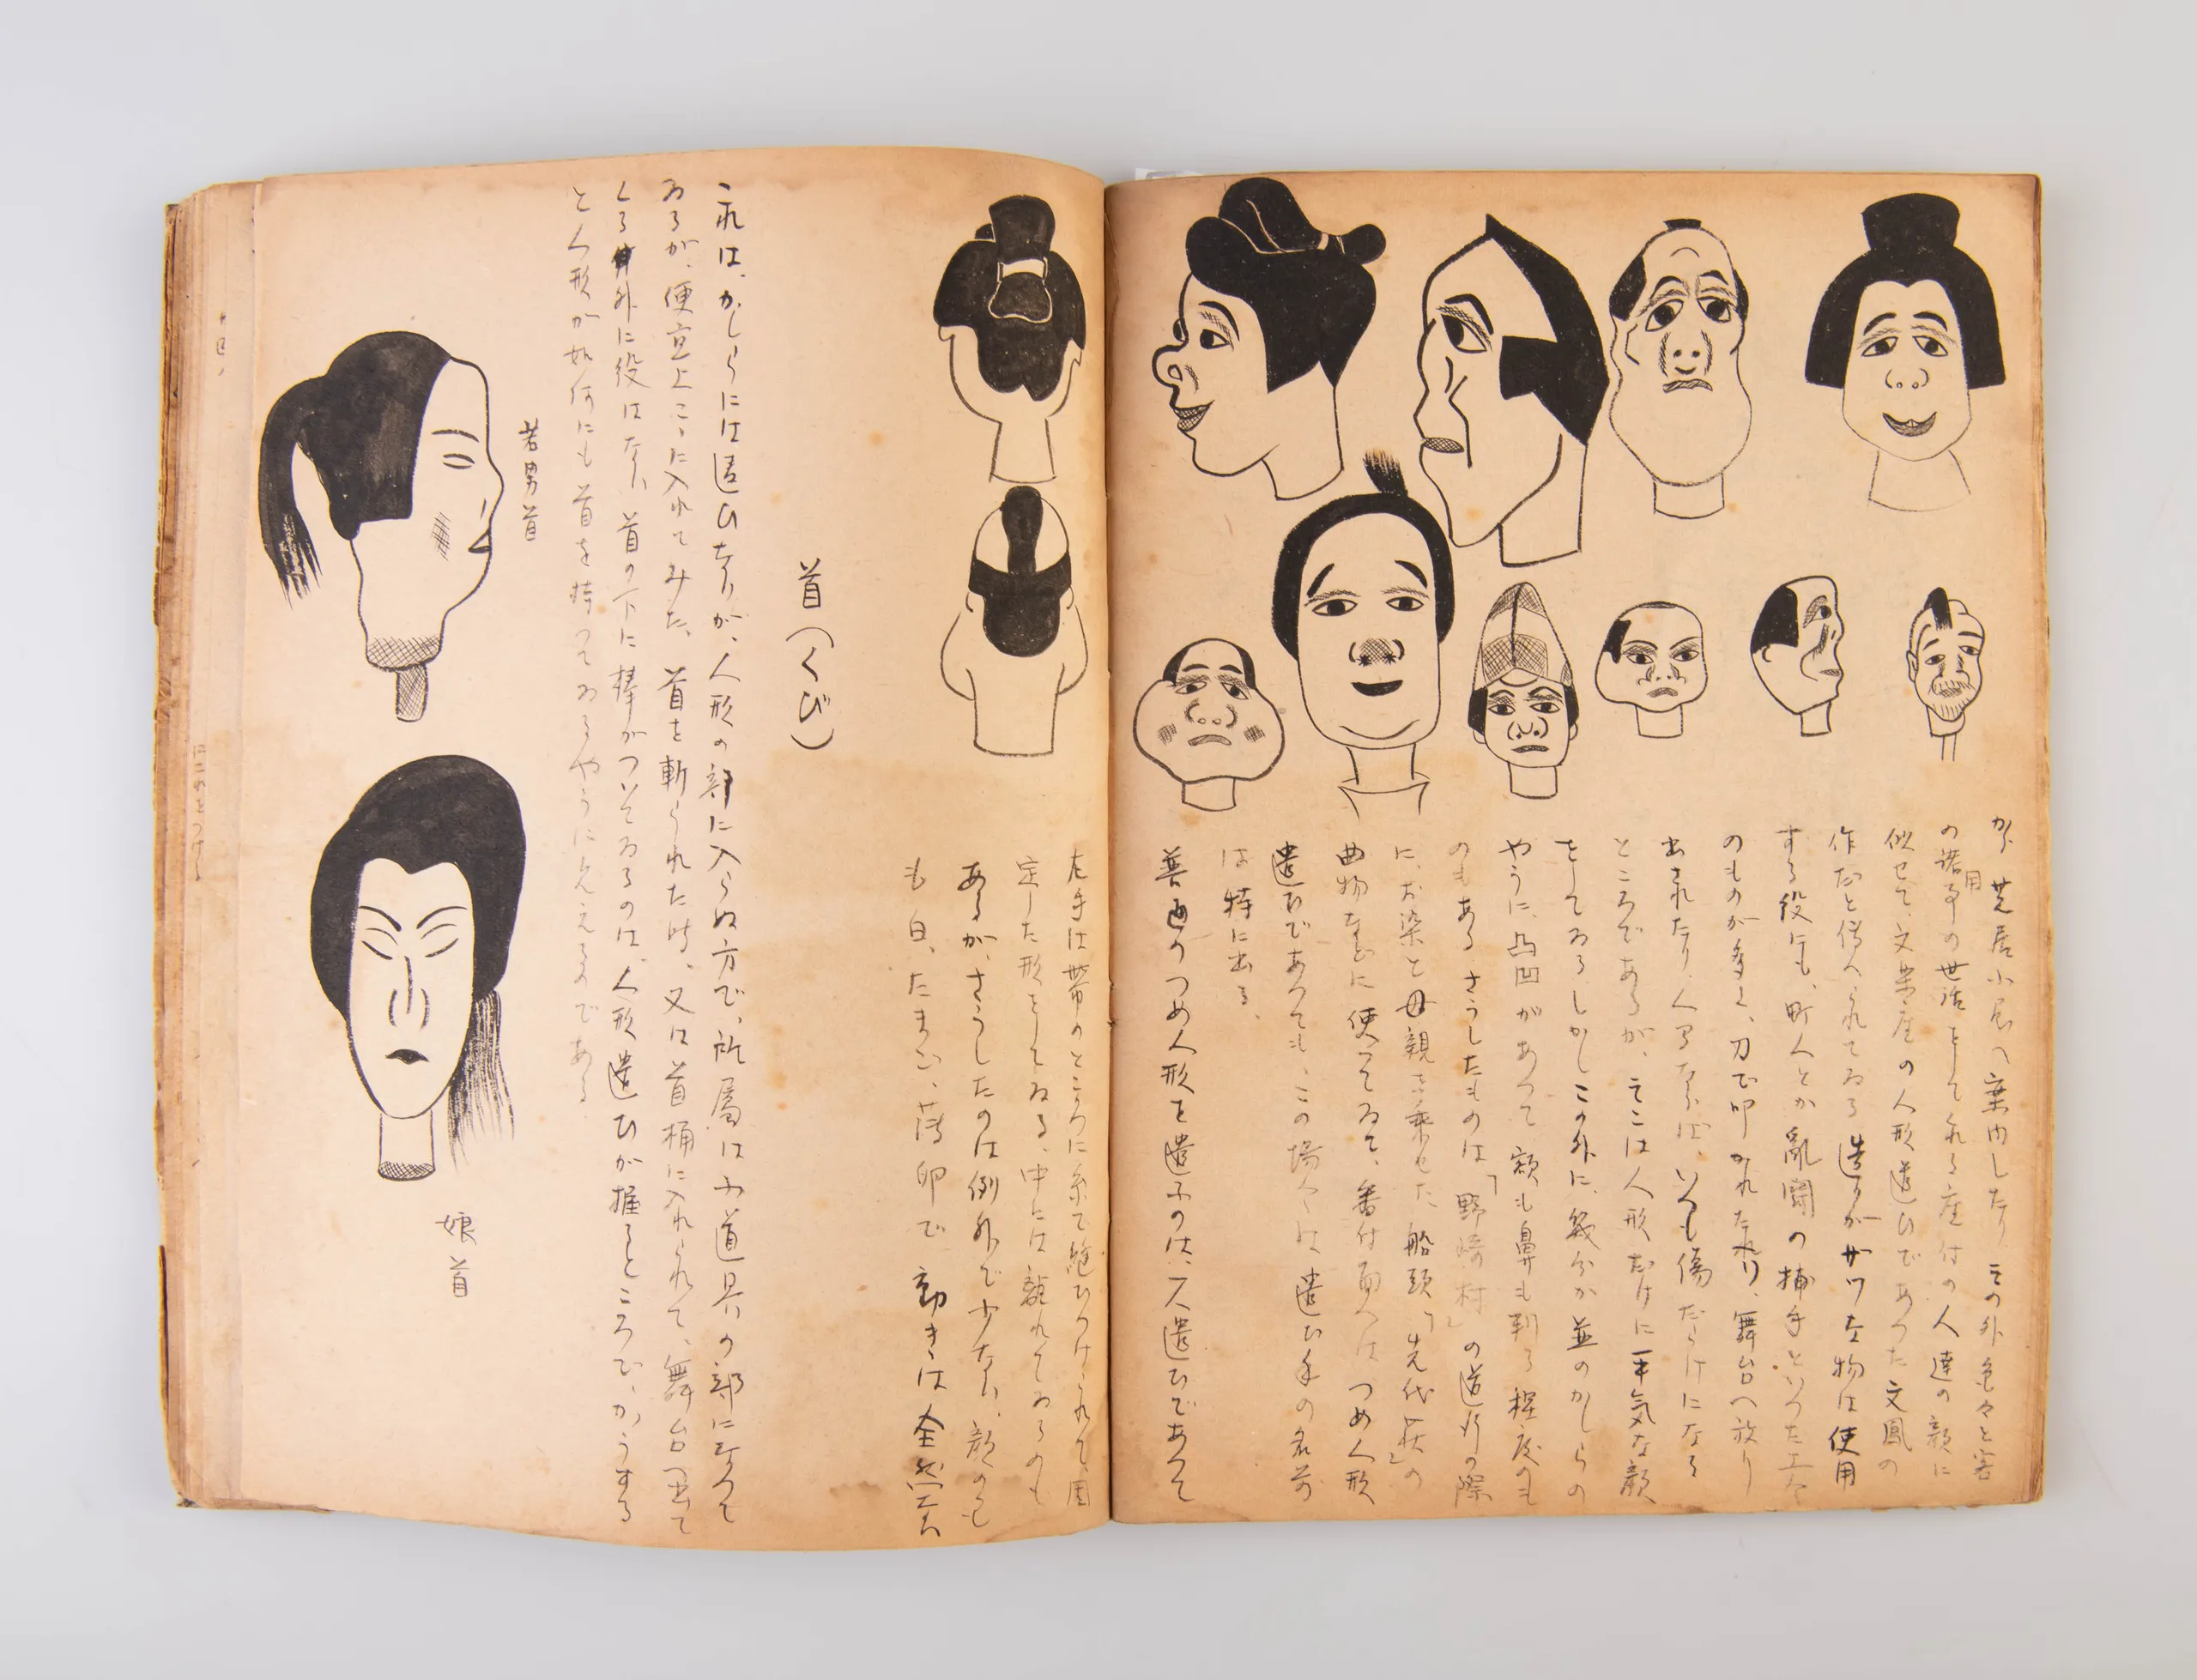 から、芝居小屋へ案内したり、その外色々と客
の諸用事の世話をしてくれる座付の人達の顔に
似せて、文楽座の人形遣ひであつた文鳳の
作だと伝へられてゐる。造りがガツな物は使用
する役にも、町人とか乱闘の捕手といつた
のものが多く、刀で叩かれたり、舞台へ放り
出されたり、人間ならば、いつも傷だらけになる
ところであるが、そこは人形だけに平気な顔
をしてゐる。しかしこの外に、幾分か並のかしらの
やうに、凸凹があつて、額も鼻も判る程度のも
のもある。さうしたものは「野崎村」の道行の際
に、お染と母親を乗せた船頭」「先代萩」の
曲物などに使つてゐて、番付面へはつめ人形
遣ひであつても、この場合は遣ひ手の名前
は特に出る。
普通のつめ人形を遣ふのは、一人遣ひであつて
左手は帯のところに糸で縫ひつけられて、固
定した形をしてゐる。中には離れてゐるのも
あるが、さうしたのは例外で少ない。顔の色
も白、たまご、薄卵で、動きは全然ない
首(くび)
これは、かしらには違ひないが、人形の部に入らぬ方で、所属は小道具の部になつて
ゐるが、便宜上こゝに入れてみた。首を斬られた時、又は首桶に入れられて、舞台へ出て
くる外に役はない。首の下に棒がついてゐるのは、人形遣ひが握るところで、かうする
と人形が如何にも首を持つてゐるやうに見えるのである。
若男首
娘首